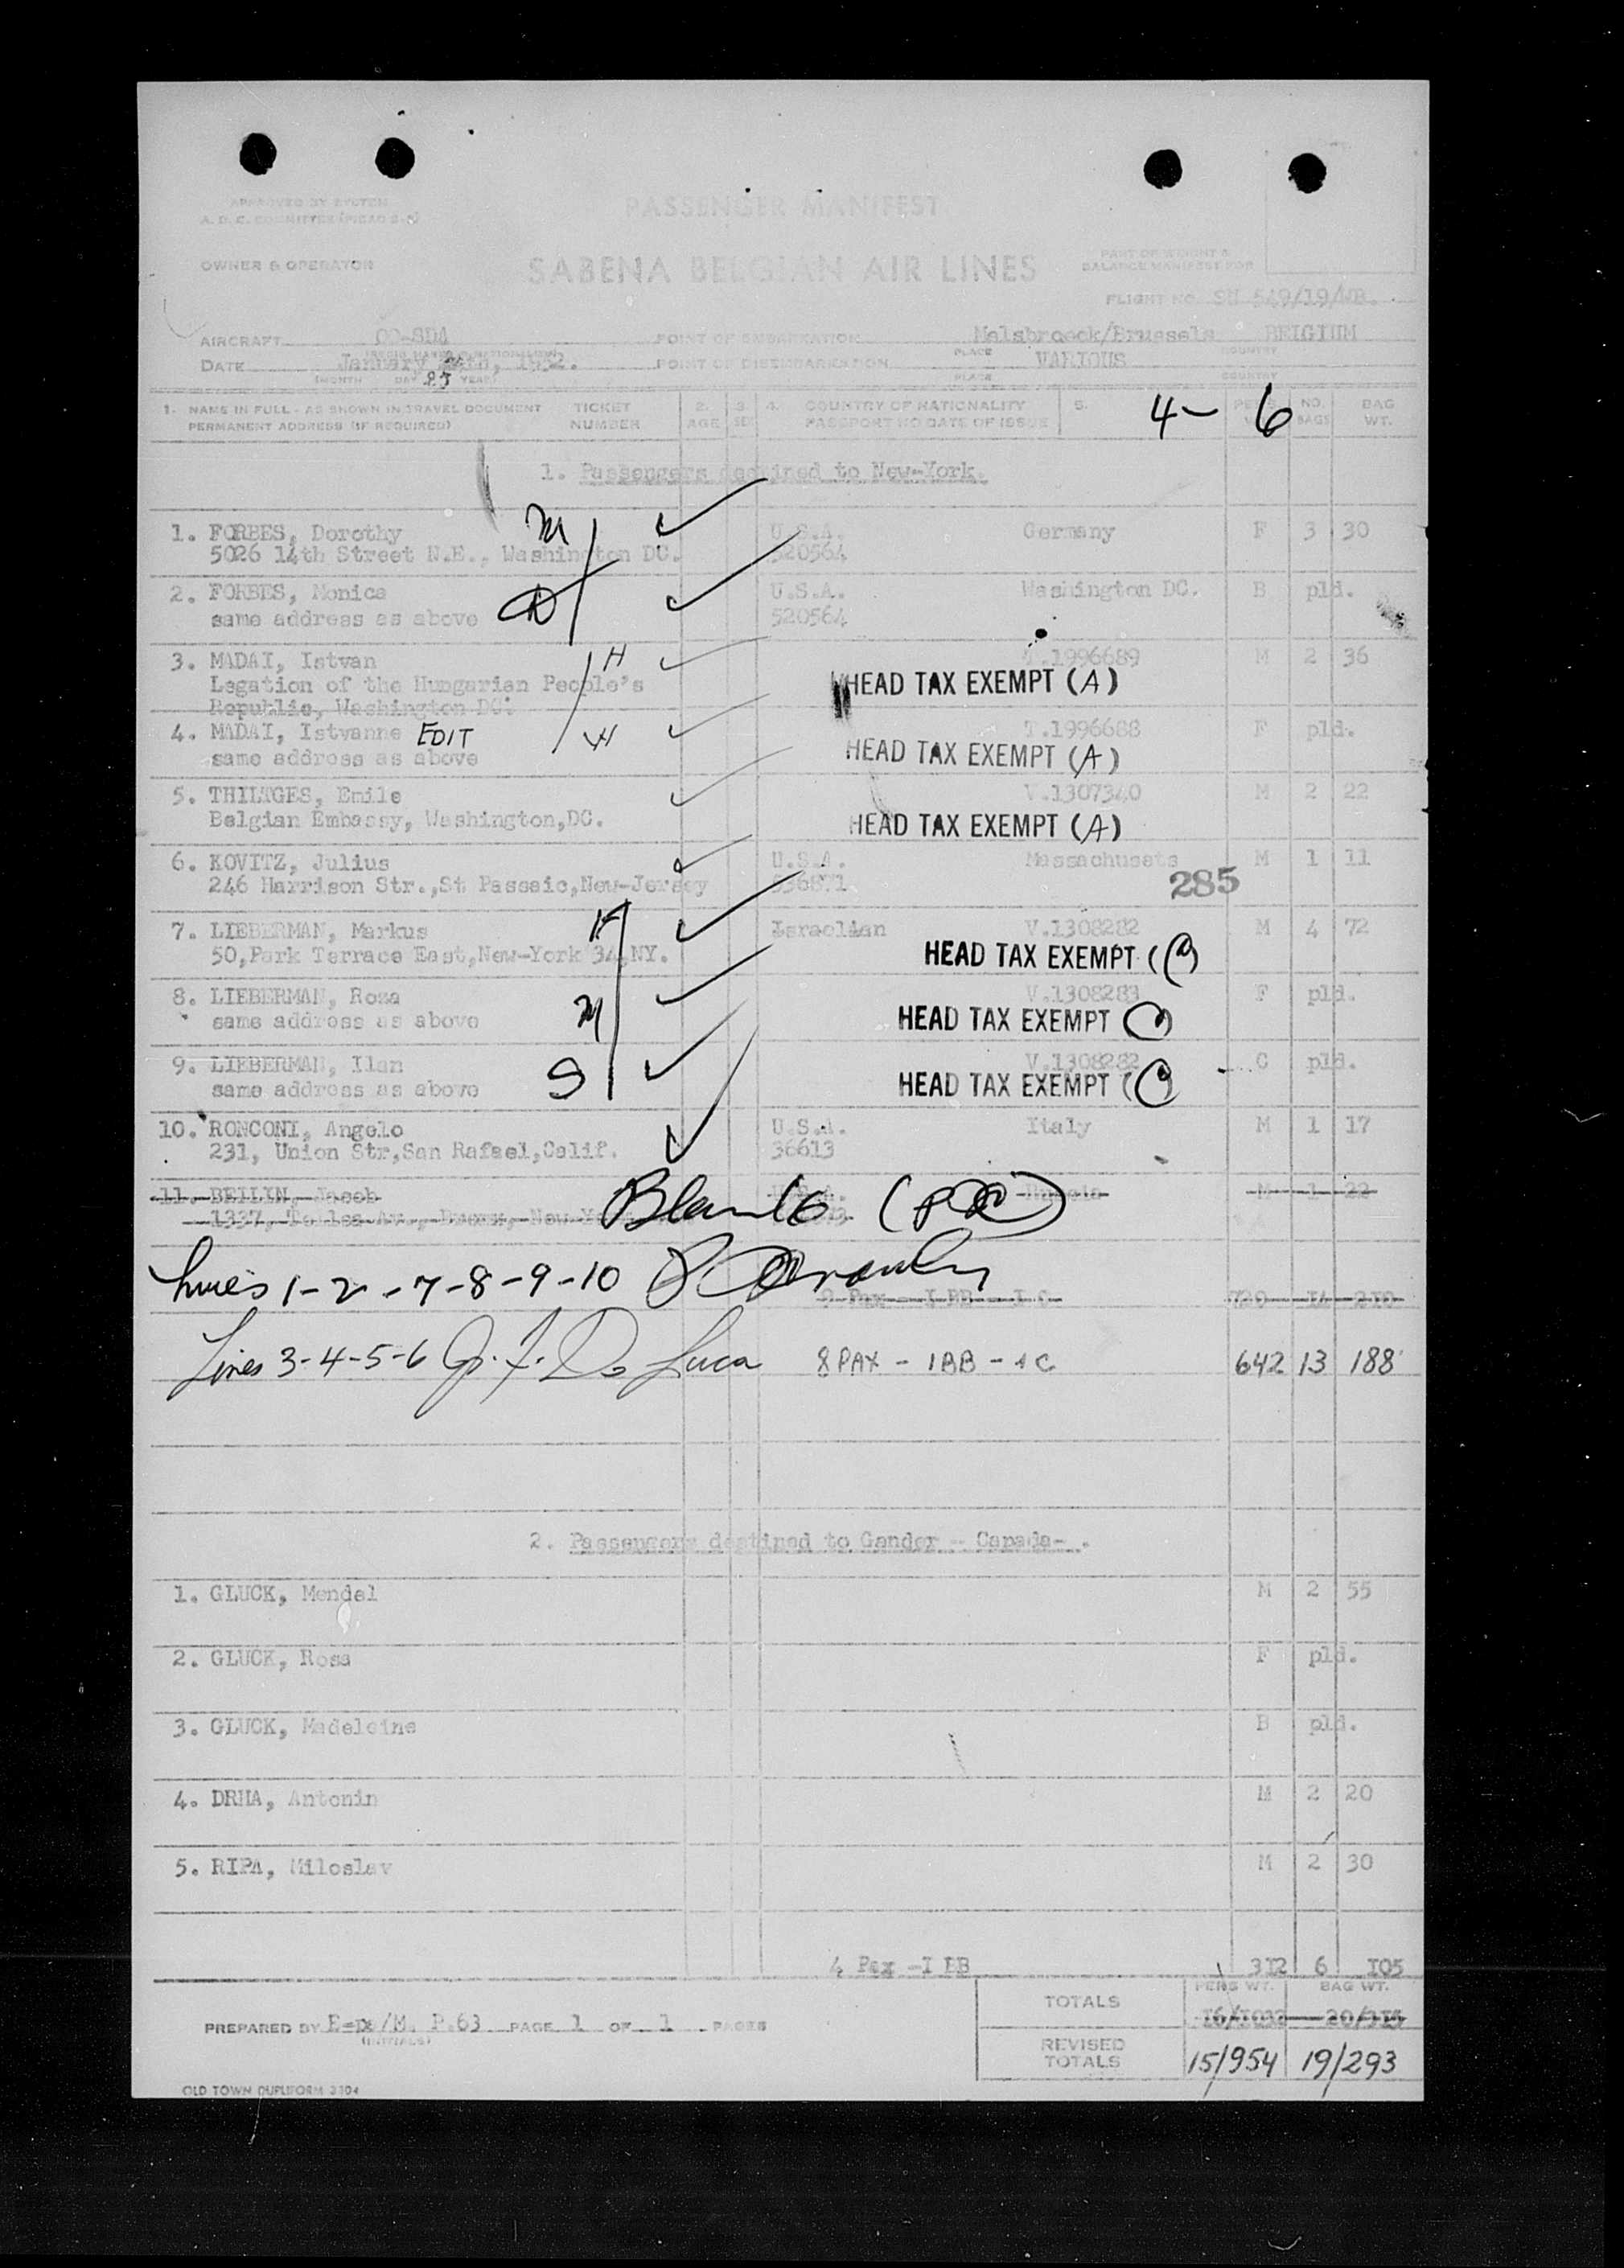 APPROVED BY SYSTEM
A. D. C. COMMITTEE (PICAO 2-5)
PASSENGER MANIFEST
OWNER & OPERATOR
SABENA BELGIAN AIR LINES
PART OF WEIGHT &
BALANCE MANIFEST FOR
FLIGHT NO. SN 549/19/WB.
AIRCRAFT OO-SDA POINT OF EMBARKATION Melsbroeck/Brussels BELGIUM
PLACE COUNTRY
DATE January th, 1952. POINT OF DISEMBARKATION VARIOUS
(MONTH DAY 25 YEAR) PLACE COUNTRY
1. NAME IN FULL - AS SHOWN IN TRAVEL DOCUMENT TICKET 2. 3. 4. COUNTRY OF NATIONALITY 5. 4 - 6 PERS NO. BAG
PERMANENT ADDRESS (IF REQUIRED) NUMBER AGE SEX PASSPORT NO DATE OF ISSUE BAGS WT.
1. Passengers destined to New-York.
1. FORBES, Dorothy M U.S.A. Germany F 3 30
5026 14th Street N.E., Washington DC. 520564
2. FORBES, Monica D U.S.A. Washington DC. B pld.
same address as above 520564
3. MADAI, Istvan H T.1996689 M 2 36
Legation of the Hungarian People's HEAD TAX EXEMPT (A)
Republic, Washington DC.
4. MADAI, Istvanne EDIT W T.1996688 F pld.
same address as above HEAD TAX EXEMPT (A)
5. THILTGES, Emile V.1307340 M 2 22
Belgian Embassy, Washington,DC. HEAD TAX EXEMPT (A)
6. KOVITZ, Julius U.S.A. Massachusets M 1 11
246 Harrison Str.,St Passaic,New-Jersey 285
7. LIEBERMAN, Markus H Israelian V.1308282 M 4 72
50,Park Terrace East,New-York 34,NY. HEAD TAX EXEMPT
8. LIEBERMAN, Rosa M V.1308283 F pld.
same address as above HEAD TAX EXEMPT
9. LIEBERMAN, Ilan S V.1308282 C pld.
same address as above HEAD TAX EXEMPT
10. RONCONI, Angelo U.S.A. Italy M 1 17
231, Union Str,San Rafael,Calif. 36613
11. BEILIN, Jacob U.S.A. Russia M 1 22
1337, Av., Bronx, New-Yo
Lines 1-2-7-8-9-10
9 Pax - I BB - I C 720 14 210
Lines 3-4-5-6 J. F. De Luca 8 PAX - 1 BB - 1 C 642 13 188
2. Passengers destined to Gander - Canada-.
1. GLUCK, Mendel M 2 55
2. GLUCK, Rosa F pld.
3. GLUCK, Madeleine B pld.
4. DRHA, Antonin M 2 20
5. RIPA, Miloslav M 2 30
4 Pax -I BB 312 6 105
PERS WT. BAG WT.
TOTALS 16/1032 20/315
PREPARED BY P.63 PAGE 1 OF 1 PAGES
(INITIALS)
REVISED
TOTALS 15/954 19/293
OLD TOWN DUPLIFORM 3104